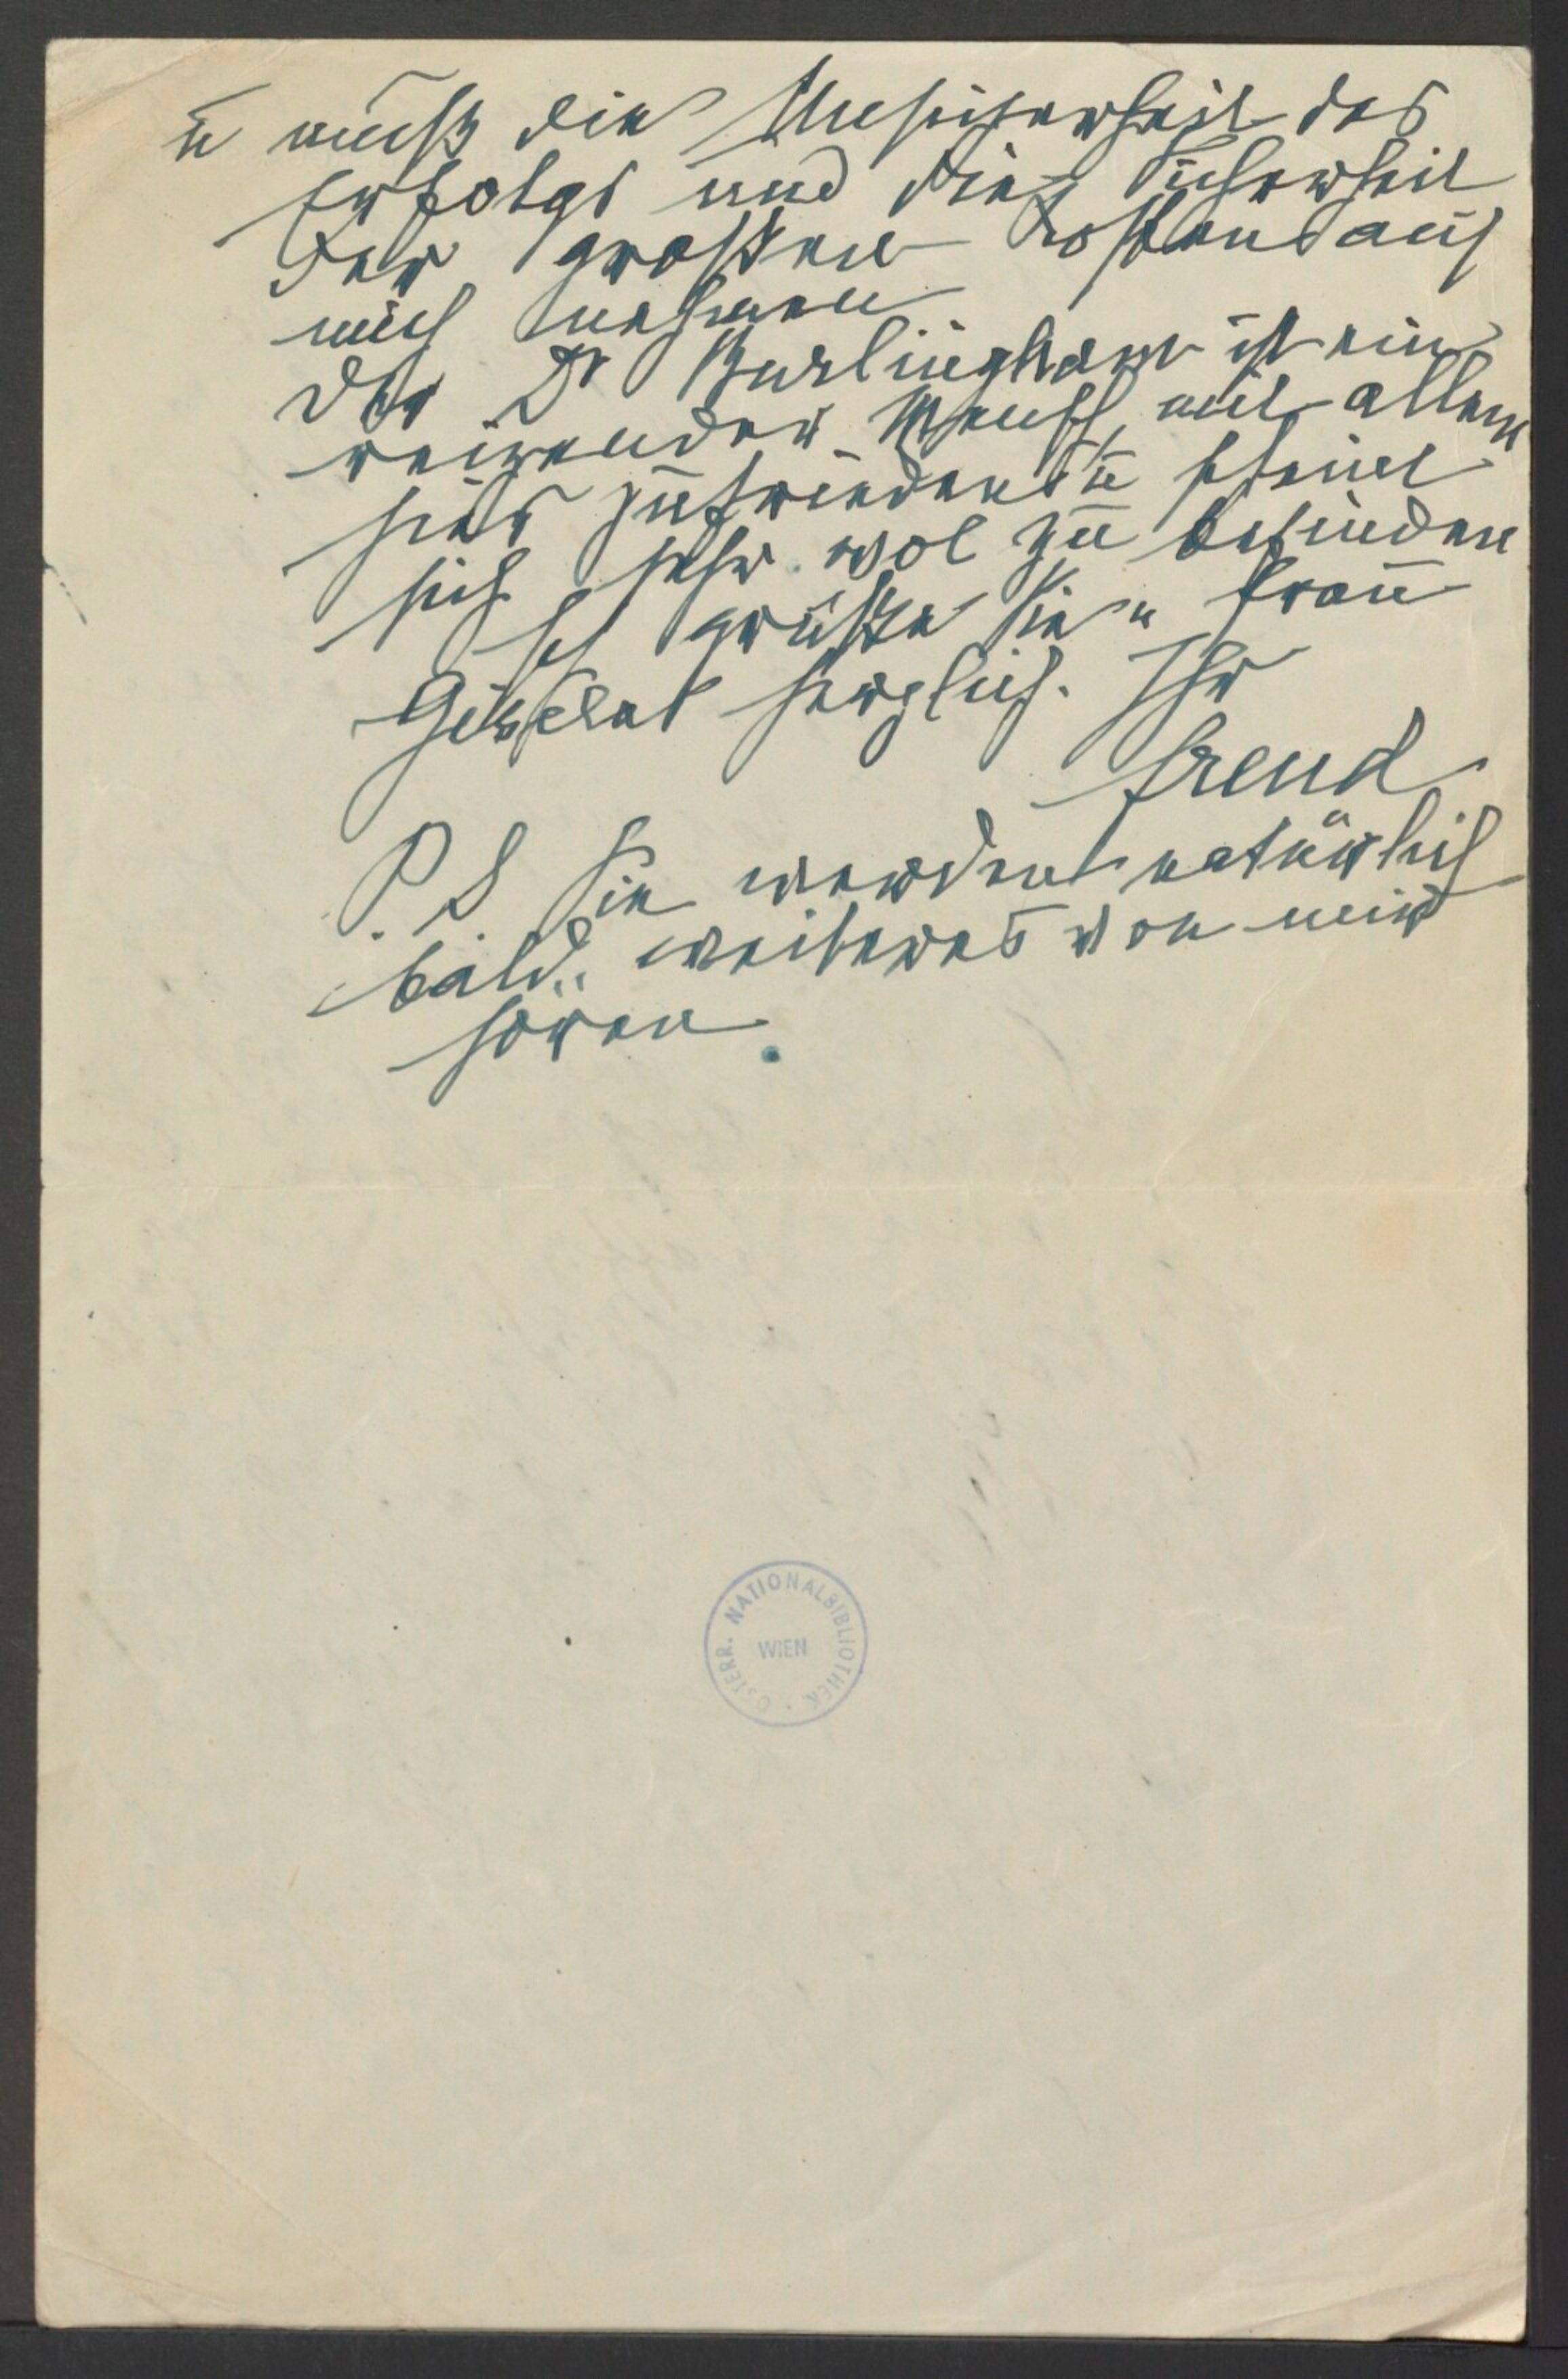 u muß die Unsicherheit des
Erfolgs und die Sicherheit
der großen Kosten auf
mich nehmen
Der Dr Burlingham ist ein
reizender Mensch, mit allem
hier zufrieden u scheint
sich sehr wol zu befinden
Ich grüße Sie u Frau
Gisela herzlich. Ihr
Freud
P. S Sie werden natürlich
bald weiteres von mir
hören.
ÖSTERR. NATIONALBIBLIOTHEK
WIEN